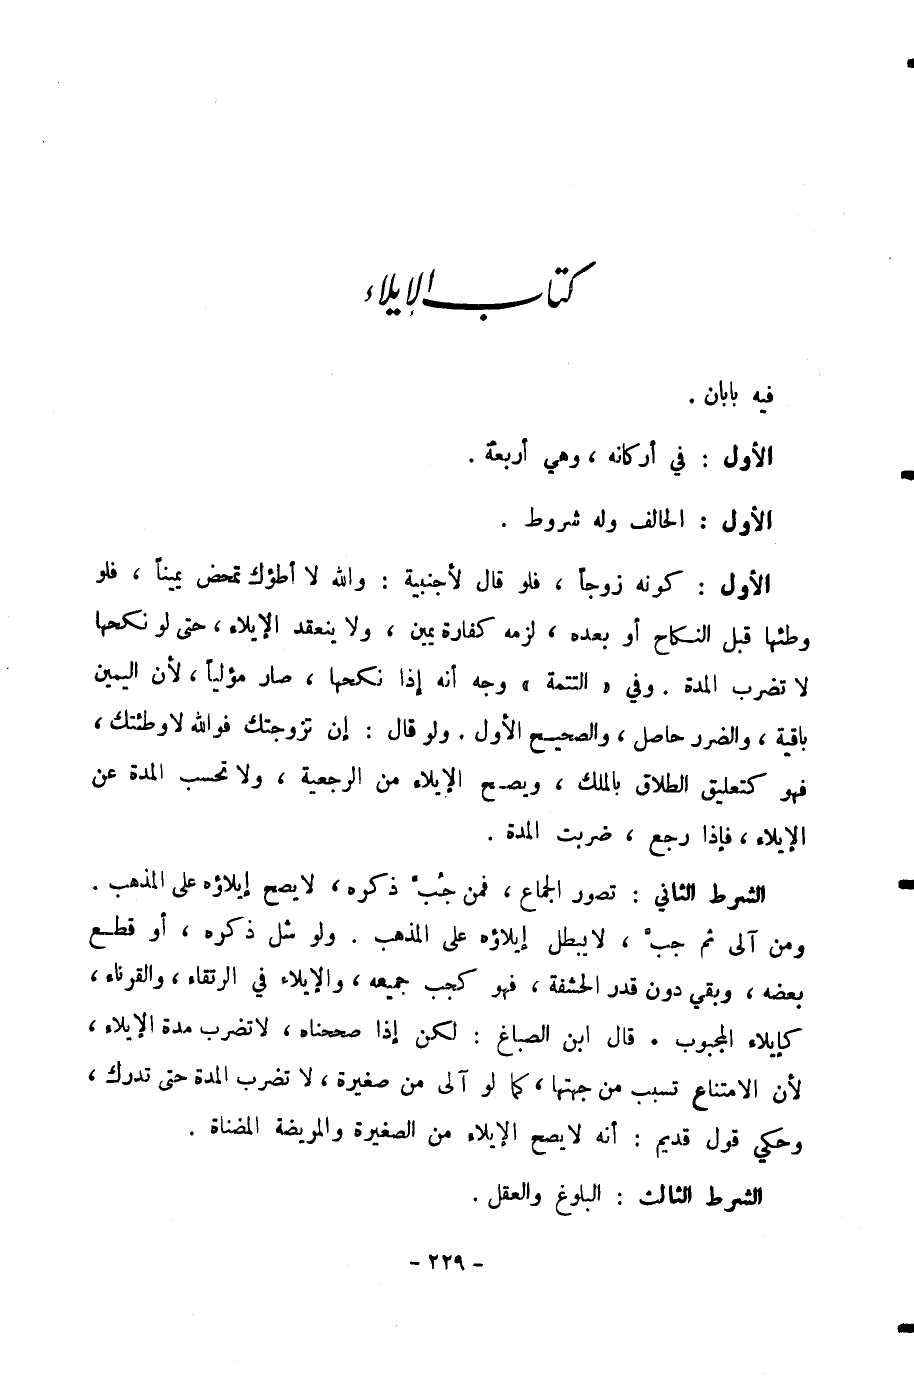 كتاب الإيلاء
فيه بابان .
الأول : في أركانه ، وهي أربعة .
الأول : الحالف وله شروط .
الأول : كونه زوجاً ، فلو قال لأجنبية : والله لا أطؤك تمحض يميناً ، فلو
وطئها قبل النكاح أو بعده ، لزمه كفارة يمين ، ولا ينعقد الإيلاء ، حتى لو نكحها
لا تضرب المدة . وفي « التتمة » وجه أنه إذا نكحها ، صار مؤلياً ، لأن اليمين
باقية ، والضرر حاصل ، والصحيح الأول . ولو قال : إن تزوجتك فوالله لا وطئتك ،
فهو كتعليق الطلاق بالملك ، ويصح الإيلاء من الرجعية ، ولا تحسب المدة عن
الإيلاء ، فإذا رجع ، ضربت المدة .
الشرط الثاني : تصور الجماع ، فمن جُبَّ ذكره ، لا يصح إيلاؤه على المذهب .
ومن آلى ثم جبَّ ، لا يبطل إيلاؤه على المذهب . ولو شل ذكره ، أو قطع
بعضه ، وبقي دون قدر الحشفة ، فهو كجب جميعه ، والإيلاء في الرتقاء ، والقرناء ،
كإيلاء المجبوب . قال ابن الصباغ : لكن إذا صححناه ، لا تضرب مدة الإيلاء ،
لأن الامتناع تسبب من جهتها ، كما لو آلى من صغيرة ، لا تضرب المدة حتى تدرك ،
وحكي قول قديم : أنه لا يصح الإيلاء من الصغيرة والمريضة المضناة .
الشرط الثالث : البلوغ والعقل .
- ٢٢٩ -